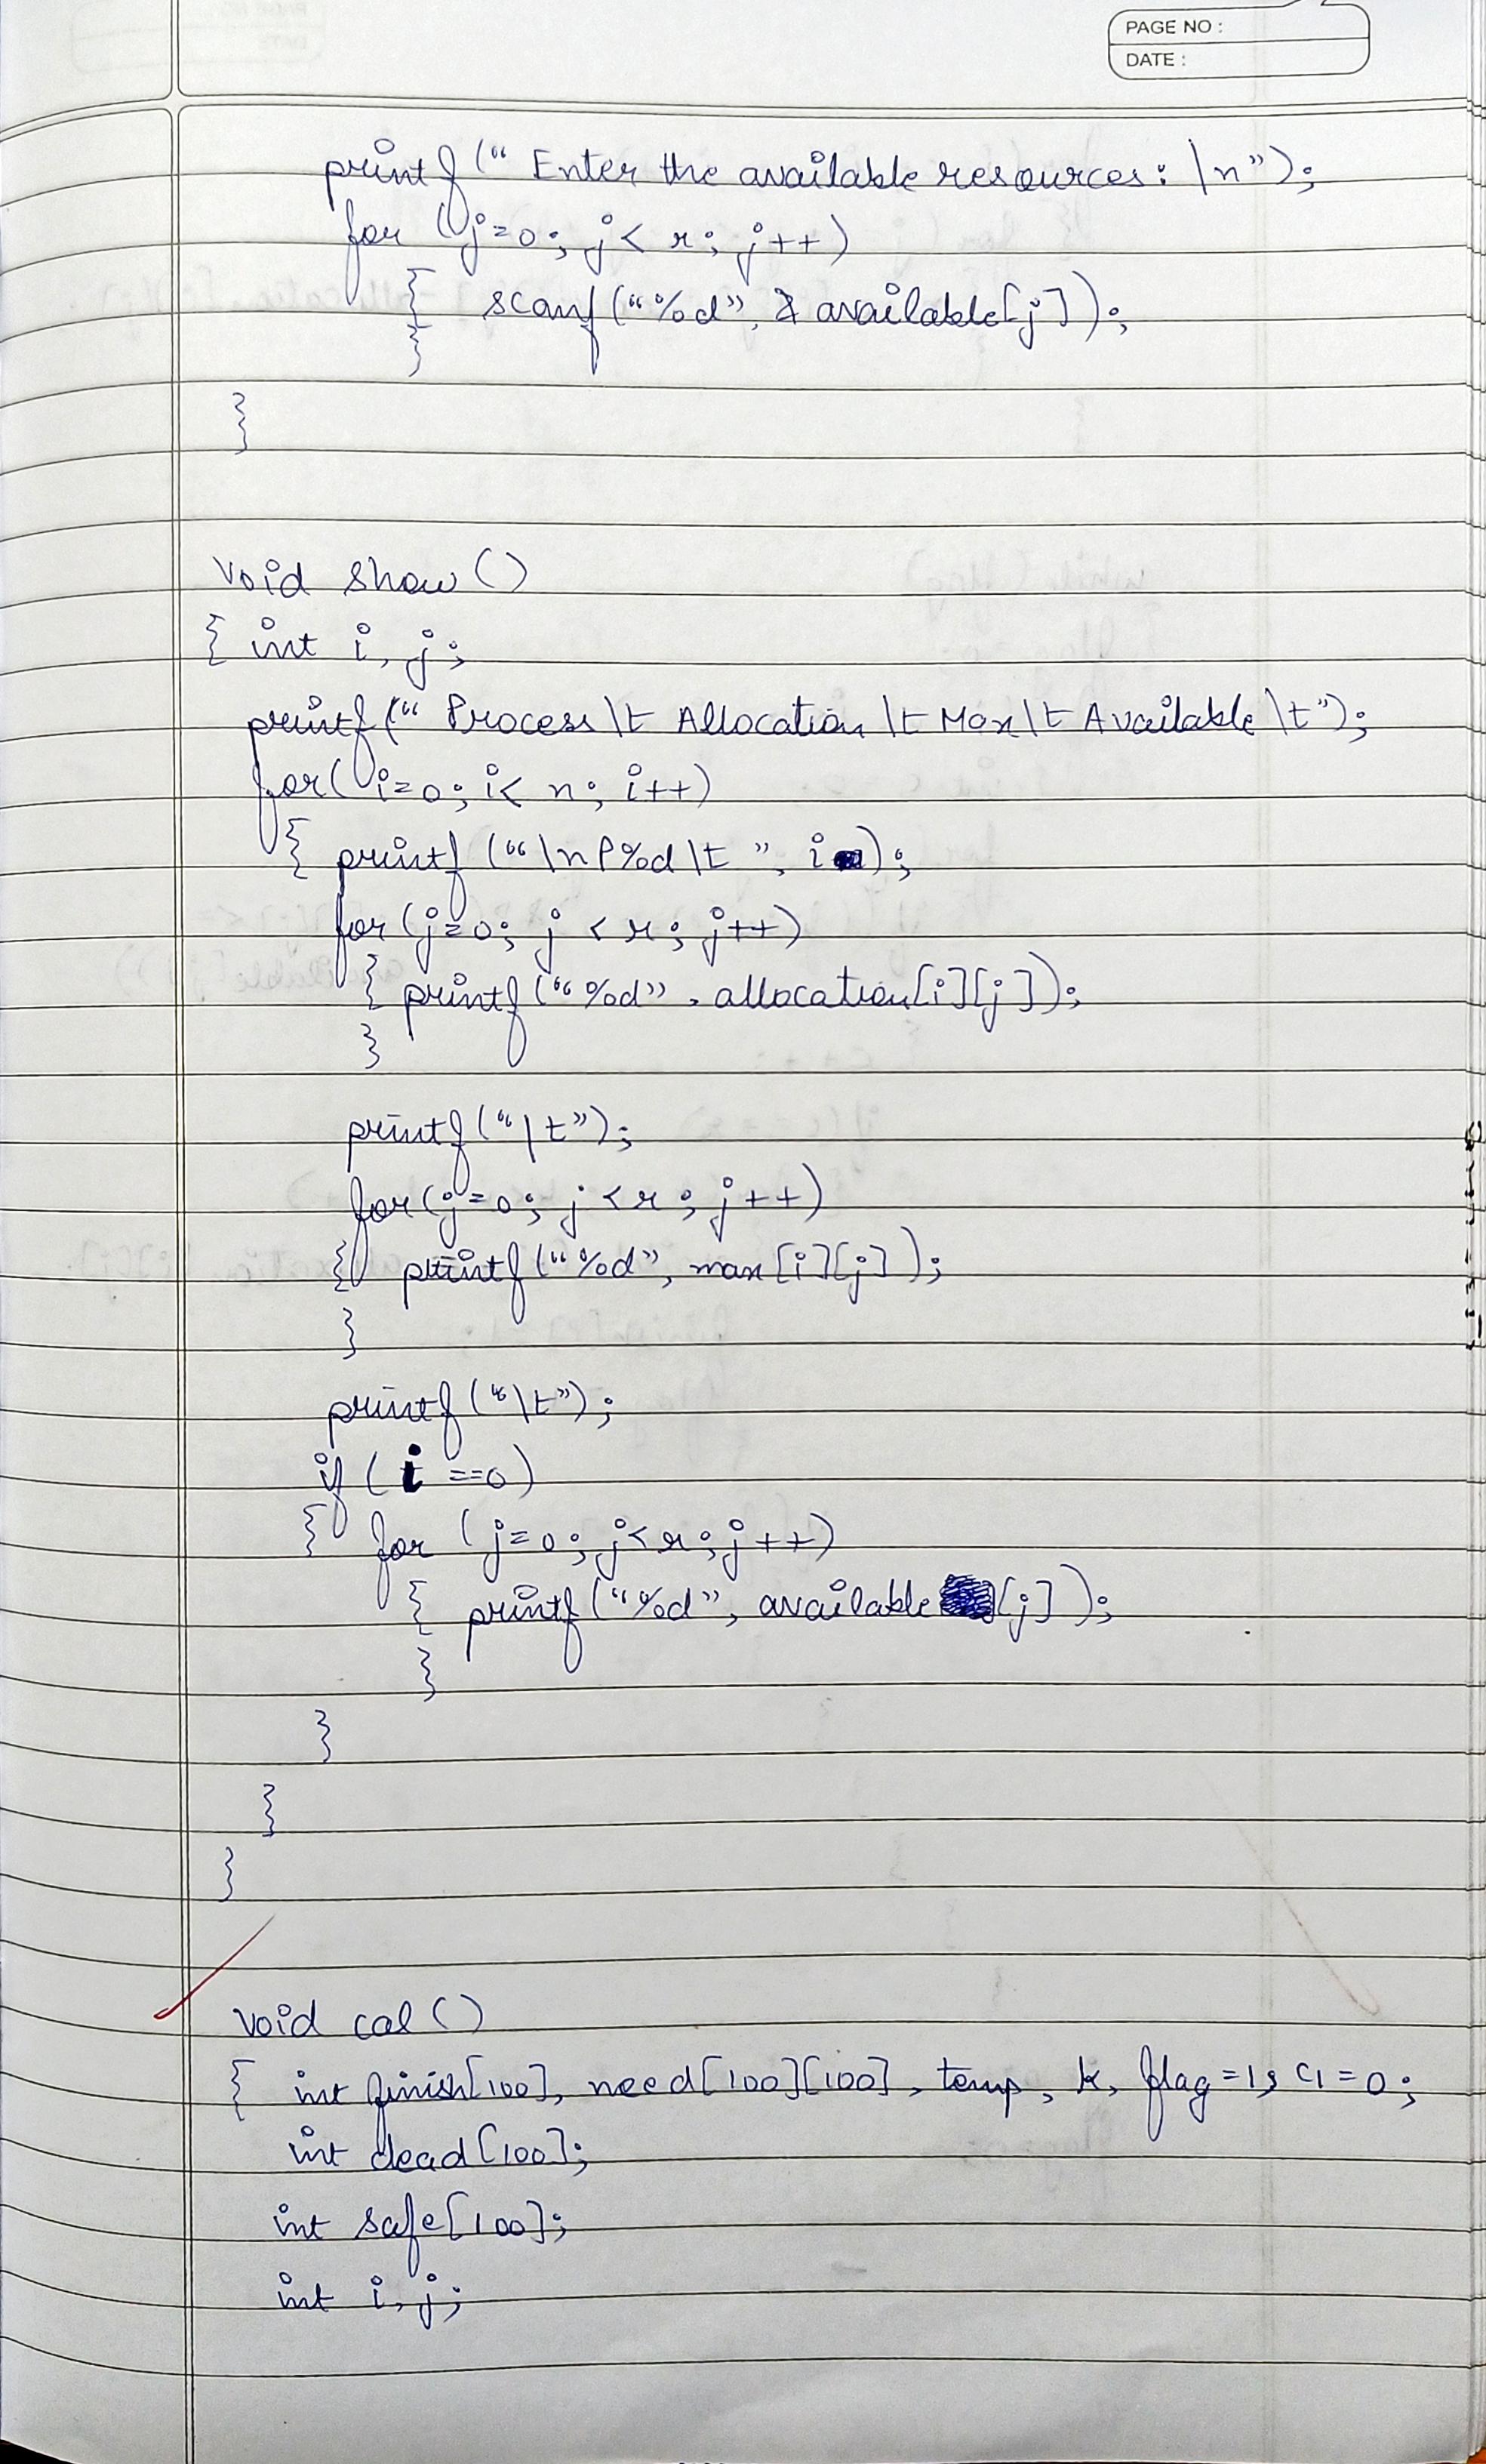 PAGE NO :
DATE :
printf (“ Enter the available resources: \n”);
for (j=0; j< r; j++)
{ scanf(“%d”, & available[j]);
}
}
void show ()
{ int i, j;
printf (“ Process \t Allocation \t Max \t Available \t”);
for( i=0; i< n; i++)
{ printf (“\n P%d \t ”, i);
for (j=0; j < r; j++)
{ printf (“%d”, allocation[i][j]);
}
printf (“\t”);
for (j=0; j < r; j++)
{ printf (“%d”, max [i][j]);
}
printf (“\t”);
if ( i ==0)
{ for (j=0; j<r; j++)
{ printf (“%d”, available [j]);
}
}
}
}
void cal ()
{ int finish[100], need[100][100], temp, k, flag=1, c1=0;
int dead [100];
int safe [100];
int i, j;